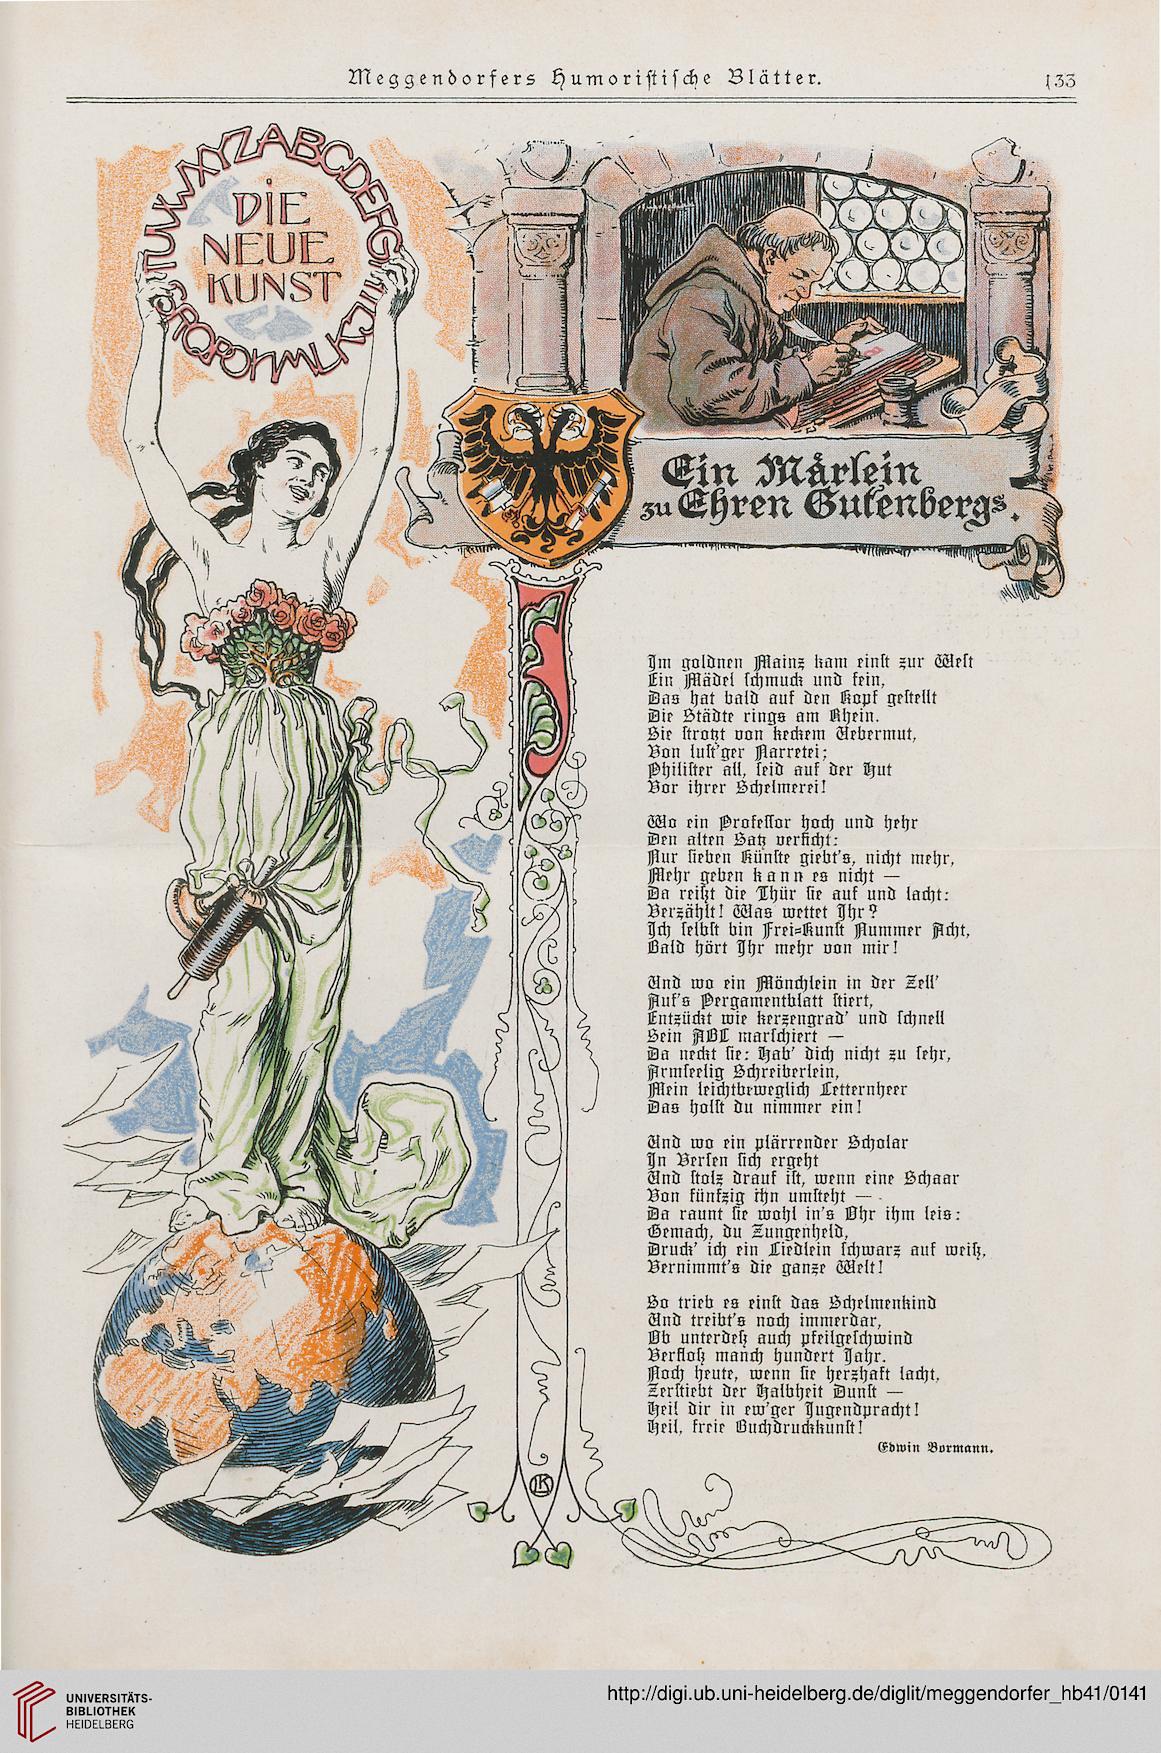 Meggendorfers Humoristische Blätter.
133
TUVWXYZABCDEFGHIJKLMNOPQRS
DIE
NEUE
KUNST
Ein Märlein
zu Ehren Gutenbergs.
Im goldnen Mainz kam einst zur Welt
Ein Mädel schmuck und fein,
Das hat bald auf den Kopf gestellt
Die Städte rings am Rhein.
Sie strotzt von keckem Uebermut,
Von lust'ger Narretei;
Philister all, seid auf der Hut
Vor ihrer Schelmerei!
Wo ein Professor hoch und hehr
Den alten Satz verficht:
Nur sieben Künste giebt's, nicht mehr,
Mehr geben kann es nicht —
Da reißt die Thür sie auf und lacht:
Verzählt! Was wettet Ihr?
Ich selbst bin Frei-Kunst Nummer Acht,
Bald hört Ihr mehr von mir!
Und wo ein Mönchlein in der Zell'
Auf's Pergamentblatt stiert,
Entzückt wie kerzengrad' und schnell
Sein ABC marschiert —
Da neckt sie: Hab' dich nicht zu sehr,
Armseelig Schreiberlein,
Mein leichtbeweglich Letternheer
Das holst du nimmer ein!
Und wo ein plärrender Scholar
In Versen sich ergeht
Und stolz drauf ist, wenn eine Schaar
Von fünfzig ihn umsteht —
Da raunt sie wohl in's Ohr ihm leis:
Gemach, du Zungenheld,
Druck' ich ein Liedlein schwarz auf weiß,
Vernimmt's die ganze Welt!
So trieb es einst das Schelmenkind
Und treibt's noch immerdar,
Ob unterdeß auch pfeilgeschwind
Verfloß manch hundert Jahr.
Noch heute, wenn sie herzhaft lacht,
Zerstiebt der Halbheit Dunst —
Heil dir in ew'ger Jugendpracht!
Heil, freie Buchdruckkunst!
Edwin Bormann.
UNIVERSITÄTS-
BIBLIOTHEK
HEIDELBERG
http://digi.ub.uni-heidelberg.de/diglit/meggendorfer_hb41/0141